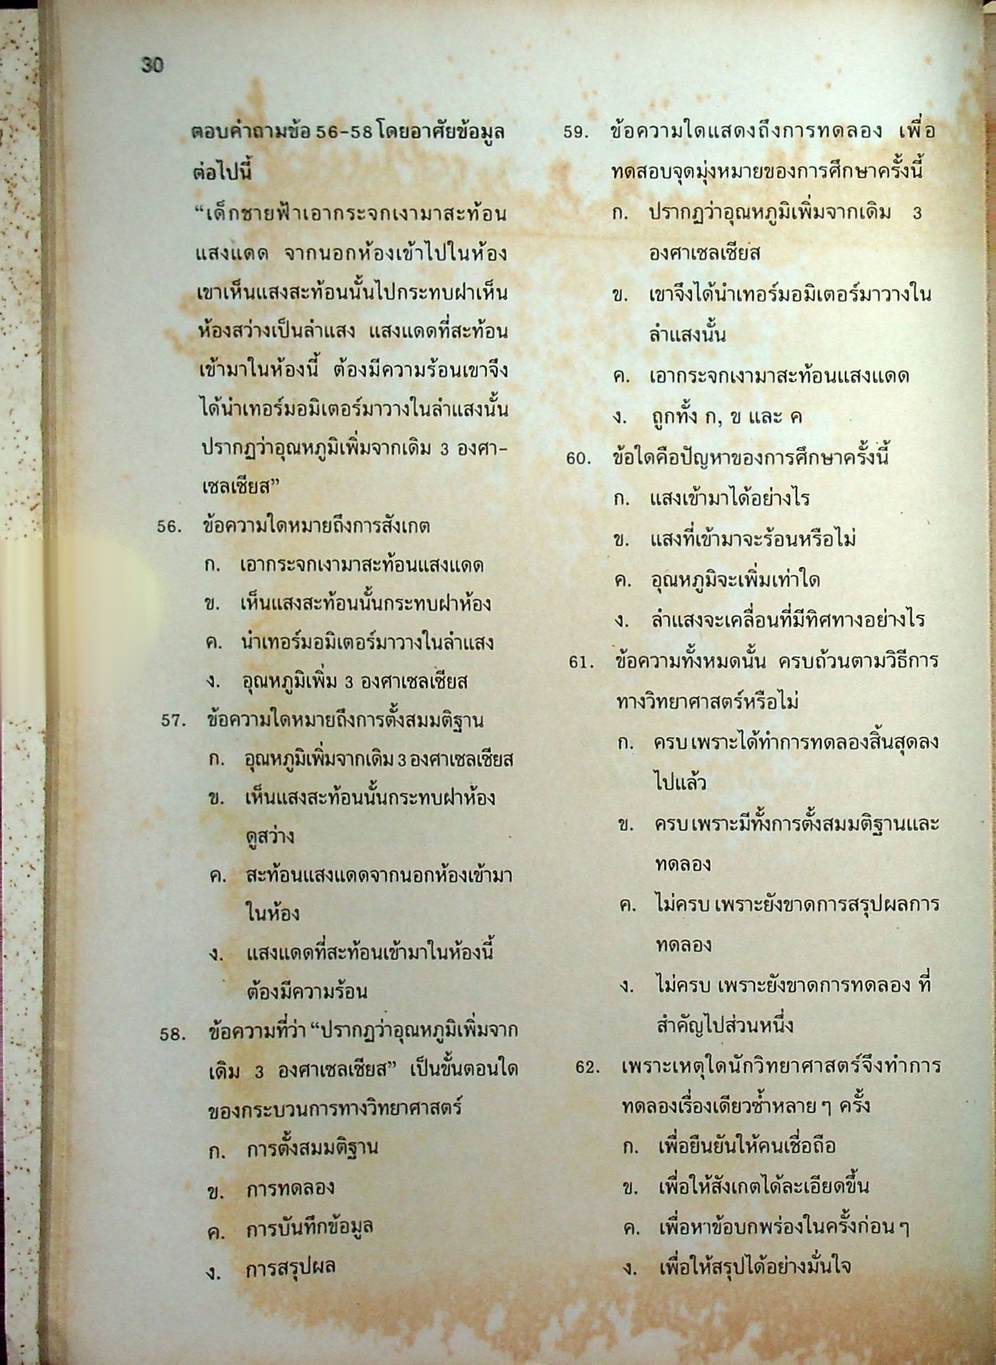 30
ตอบคำถามข้อ 56-58 โดยอาศัยข้อมูล
ต่อไปนี้
“เด็กชายฟ้าเอากระจกเงามาสะท้อน
แสงแดด จากนอกห้องเข้าไปในห้อง
เขาเห็นแสงสะท้อนนั้นไปกระทบฝาเห็น
ห้องสว่างเป็นลำแสง แสงแดดที่สะท้อน
เข้ามาในห้องนี้ ต้องมีความร้อนเขาจึง
ได้นำเทอร์มอมิเตอร์มาวางในลำแสงนั้น
ปรากฏว่าอุณหภูมิเพิ่มจากเดิม 3 องศา-
เซลเซียส”
56. ข้อความใดหมายถึงการสังเกต
ก. เอากระจกเงามาสะท้อนแสงแดด
ข. เห็นแสงสะท้อนนั้นกระทบฝาห้อง
ค. นำเทอร์มอมิเตอร์มาวางในลำแสง
ง. อุณหภูมิเพิ่ม 3 องศาเซลเซียส
57. ข้อความใดหมายถึงการตั้งสมมติฐาน
ก. อุณหภูมิเพิ่มจากเดิม 3 องศาเซลเซียส
ข. เห็นแสงสะท้อนนั้นกระทบฝาห้อง
ดูสว่าง
ค. สะท้อนแสงแดดจากนอกห้องเข้ามา
ในห้อง
ง. แสงแดดที่สะท้อนเข้ามาในห้องนี้
ต้องมีความร้อน
58. ข้อความที่ว่า “ปรากฏว่าอุณหภูมิเพิ่มจาก
เดิม 3 องศาเซลเซียส” เป็นขั้นตอนใด
ของกระบวนการทางวิทยาศาสตร์
ก. การตั้งสมมติฐาน
ข. การทดลอง
ค. การบันทึกข้อมูล
ง. การสรุปผล
59. ข้อความใดแสดงถึงการทดลอง เพื่อ
ทดสอบจุดมุ่งหมายของการศึกษาครั้งนี้
ก. ปรากฏว่าอุณหภูมิเพิ่มจากเดิม 3
องศาเซลเซียส
ข. เขาจึงได้นำเทอร์มอมิเตอร์มาวางใน
ลำแสงนั้น
ค. เอากระจกเงามาสะท้อนแสงแดด
ง. ถูกทั้ง ก, ข และ ค
60. ข้อใดคือปัญหาของการศึกษาครั้งนี้
ก. แสงเข้ามาได้อย่างไร
ข. แสงที่เข้ามาจะร้อนหรือไม่
ค. อุณหภูมิจะเพิ่มเท่าใด
ง. ลำแสงจะเคลื่อนที่มีทิศทางอย่างไร
61. ข้อความทั้งหมดนั้น ครบถ้วนตามวิธีการ
ทางวิทยาศาสตร์หรือไม่
ก. ครบ เพราะได้ทำการทดลองสิ้นสุดลง
ไปแล้ว
ข. ครบ เพราะมีทั้งการตั้งสมมติฐานและ
ทดลอง
ค. ไม่ครบ เพราะยังขาดการสรุปผลการ
ทดลอง
ง. ไม่ครบ เพราะยังขาดการทดลอง ที่
สำคัญไปส่วนหนึ่ง
62. เพราะเหตุใดนักวิทยาศาสตร์จึงทำการ
ทดลองเรื่องเดียวซ้ำหลาย ๆ ครั้ง
ก. เพื่อยืนยันให้คนเชื่อถือ
ข. เพื่อให้สังเกตได้ละเอียดขึ้น
ค. เพื่อหาข้อบกพร่องในครั้งก่อน ๆ
ง. เพื่อให้สรุปได้อย่างมั่นใจ